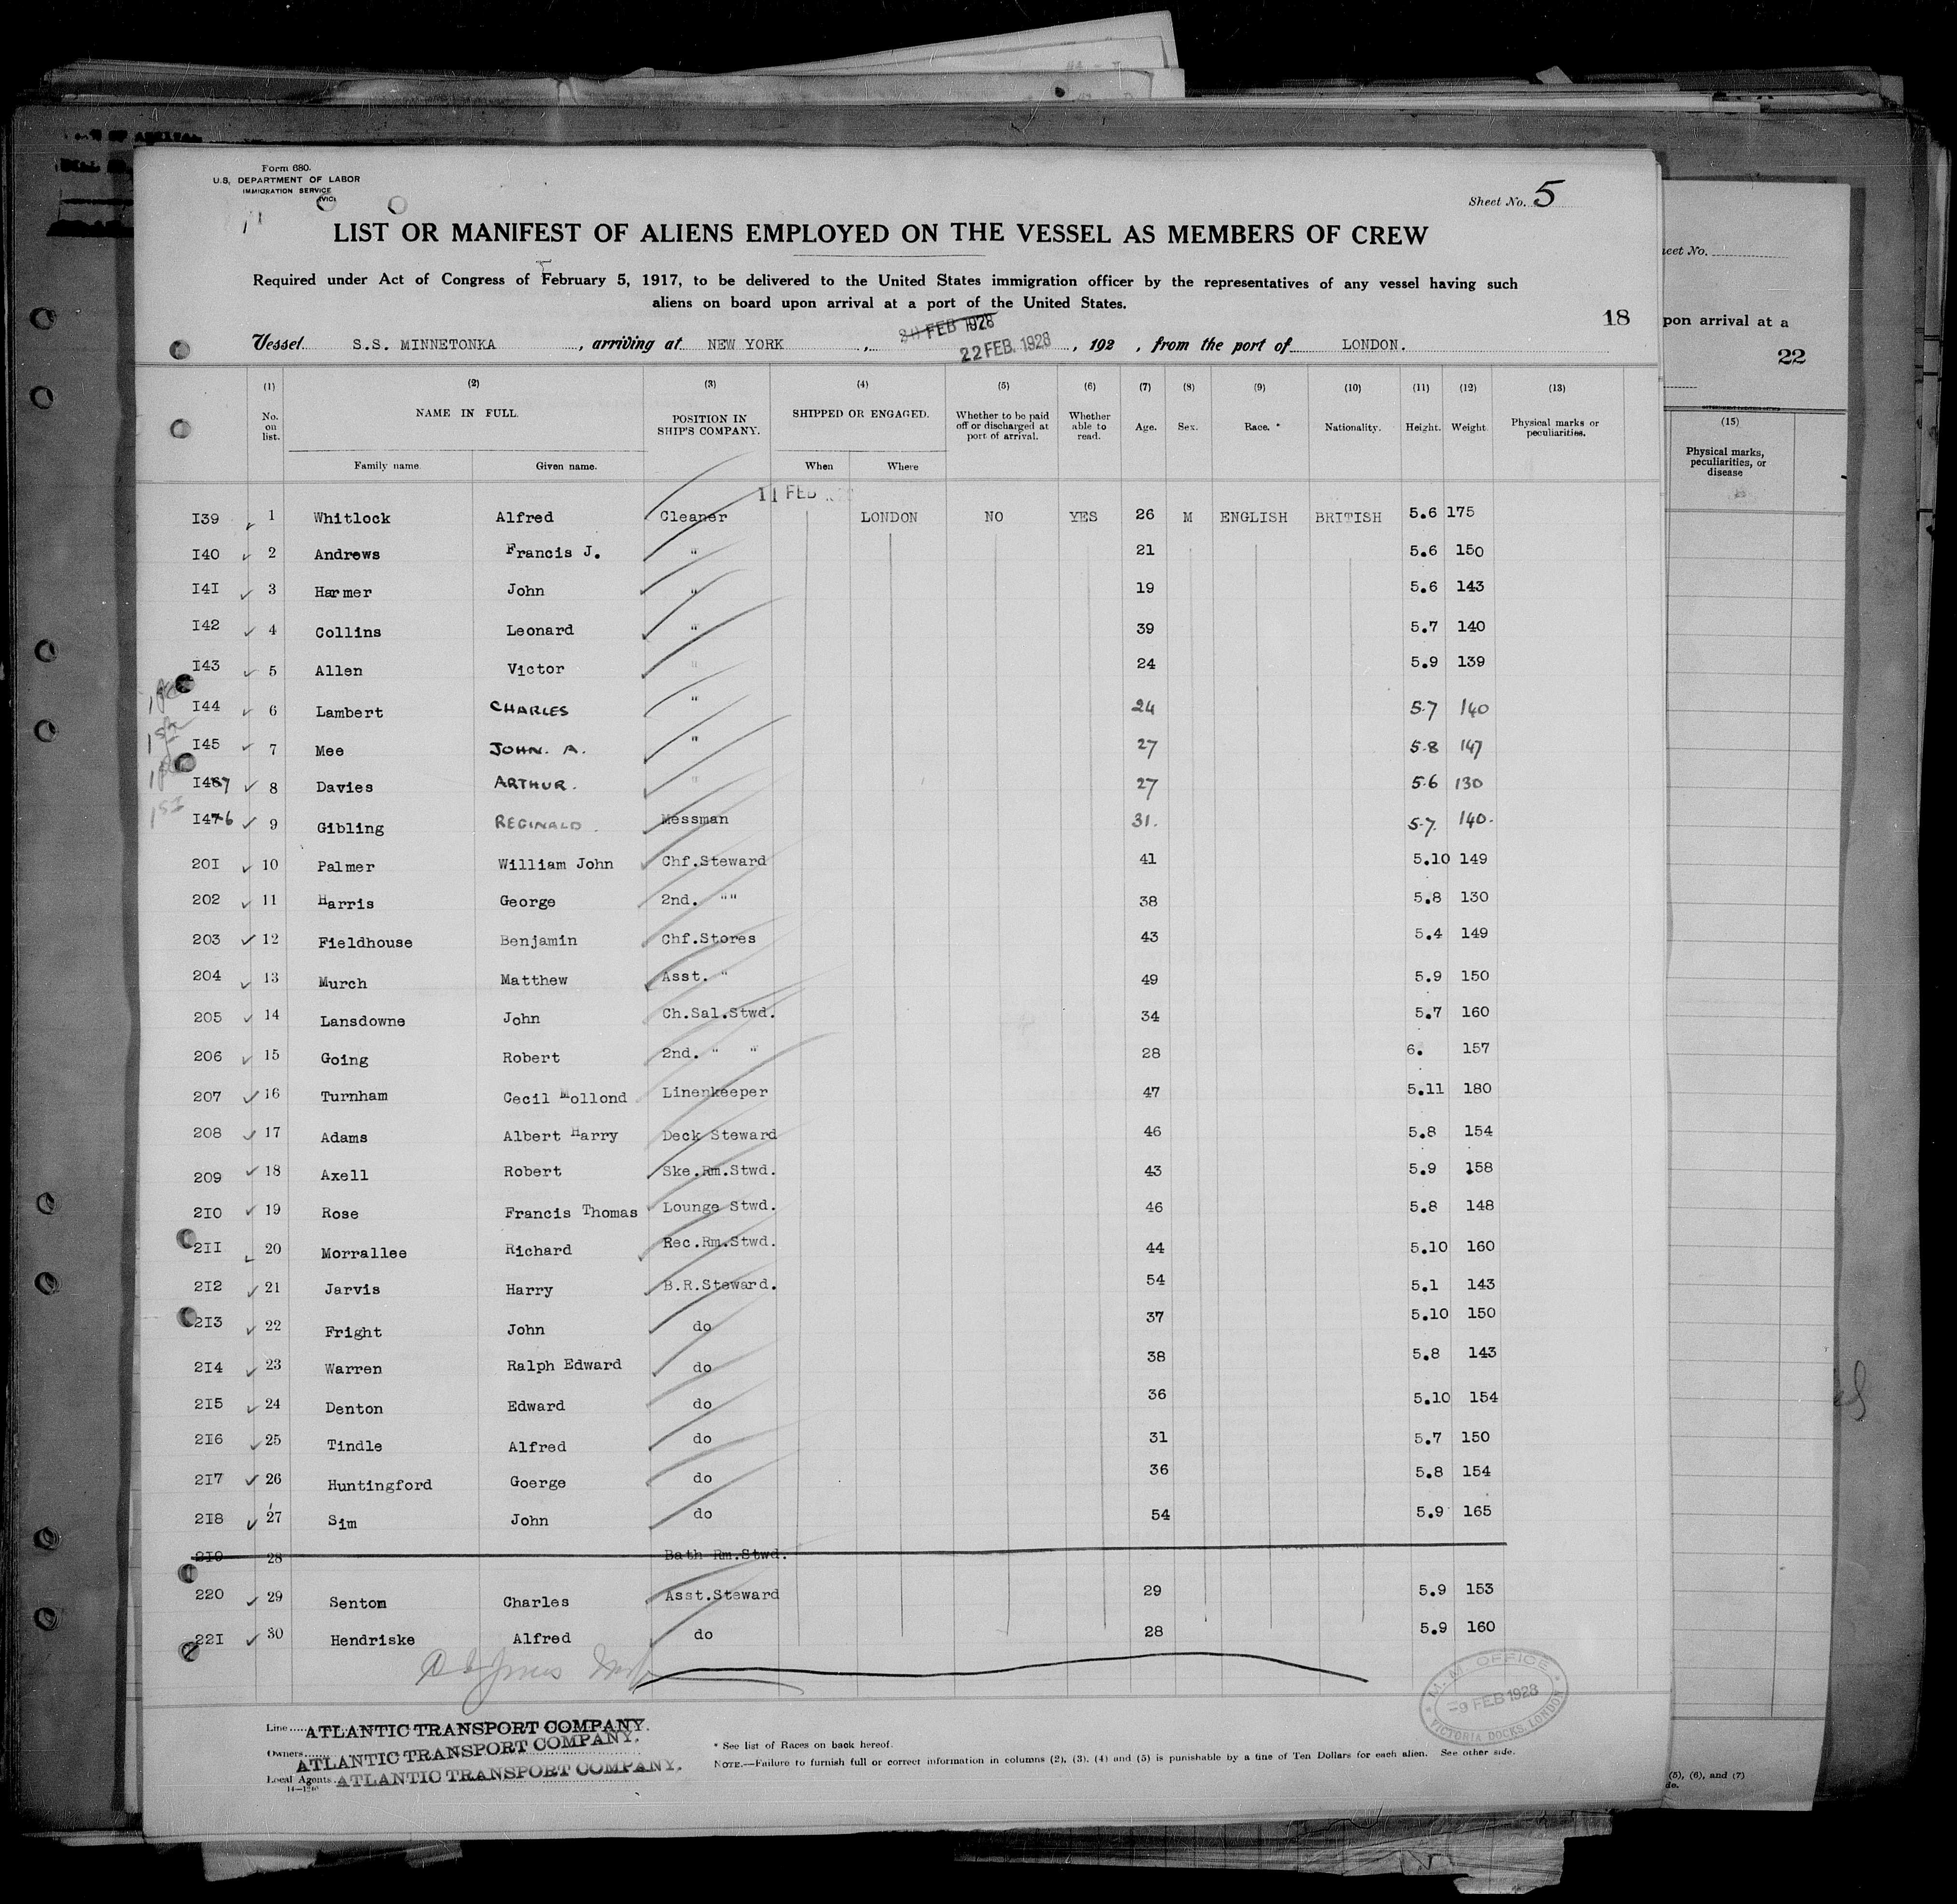 Form 680.
U.S. DEPARTMENT OF LABOR
IMMIGRATION SERVICE
Sheet No. 5
LIST OR MANIFEST OF ALIENS EMPLOYED ON THE VESSEL AS MEMBERS OF CREW
Required under Act of Congress of February 5, 1917, to be delivered to the United States immigration officer by the representatives of any vessel having such
aliens on board upon arrival at a port of the United States.
18
Vessel S.S. MINNETONKA, arriving at NEW YORK, 22 FEB. 1928, 192 , from the port of LONDON.
(1) (2) (3) (4) (5) (6) (7) (8) (9) (10) (11) (12) (13)
No. on list. NAME IN FULL. POSITION IN SHIP'S COMPANY. SHIPPED OR ENGAGED. Whether to be paid off or discharged at port of arrival. Whether able to read. Age. Sex. Race. * Nationality. Height. Weight Physical marks or peculiarities.
Family name Given name. When Where
11 FEB
139 1 Whitlock Alfred Cleaner LONDON NO YES 26 M ENGLISH BRITISH 5.6 175
140 2 Andrews Francis J. " 21 5.6 150
141 3 Harmer John " 19 5.6 143
142 4 Collins Leonard " 39 5.7 140
143 5 Allen Victor " 24 5.9 139
144 6 Lambert CHARLES " 24 5.7 140
145 7 Mee JOHN. A. " 27 5.8 147
147 8 Davies ARTHUR. " 27 5.6 130
146 9 Gibling REGINALD. Messman 31. 5.7. 140.
201 10 Palmer William John Chf.Steward 41 5.10 149
202 11 Harris George 2nd. "" 38 5.8 130
203 12 Fieldhouse Benjamin Chf.Stores 43 5.4 149
204 13 Murch Matthew Asst. " 49 5.9 150
205 14 Lansdowne John Ch.Sal.Stwd. 34 5.7 160
206 15 Going Robert 2nd. " " 28 6. 157
207 16 Turnham Cecil Mollond Linenkeeper 47 5.11 180
208 17 Adams Albert Harry Deck Steward 46 5.8 154
209 18 Axell Robert Ske.Rm.Stwd. 43 5.9 158
210 19 Rose Francis Thomas Lounge Stwd. 46 5.8 148
211 20 Morrallee Richard Rec.Rm.Stwd. 44 5.10 160
212 21 Jarvis Harry B.R.Steward. 54 5.1 143
213 22 Fright John do 37 5.10 150
214 23 Warren Ralph Edward do 38 5.8 143
215 24 Denton Edward do 36 5.10 154
216 25 Tindle Alfred do 31 5.7 150
217 26 Huntingford Goerge do 36 5.8 154
218 27 Sim John do 54 5.9 165
219 28 Bath Rm.Stwd.
220 29 Sentom Charles Asst.Steward 29 5.9 153
221 30 Hendriske Alfred do 28 5.9 160
M.M. OFFICE
-9 FEB 1928
VICTORIA DOCKS, LONDON
Line ATLANTIC TRANSPORT COMPANY.
Owners ATLANTIC TRANSPORT COMPANY.
Local Agents ATLANTIC TRANSPORT COMPANY.
* See list of Races on back hereof.
NOTE.—Failure to furnish full or correct information in columns (2), (3), (4) and (5) is punishable by a fine of Ten Dollars for each alien. See other side.
eet No.
pon arrival at a
22
(15)
Physical marks,
peculiarities, or
disease
(5), (6), and (7)